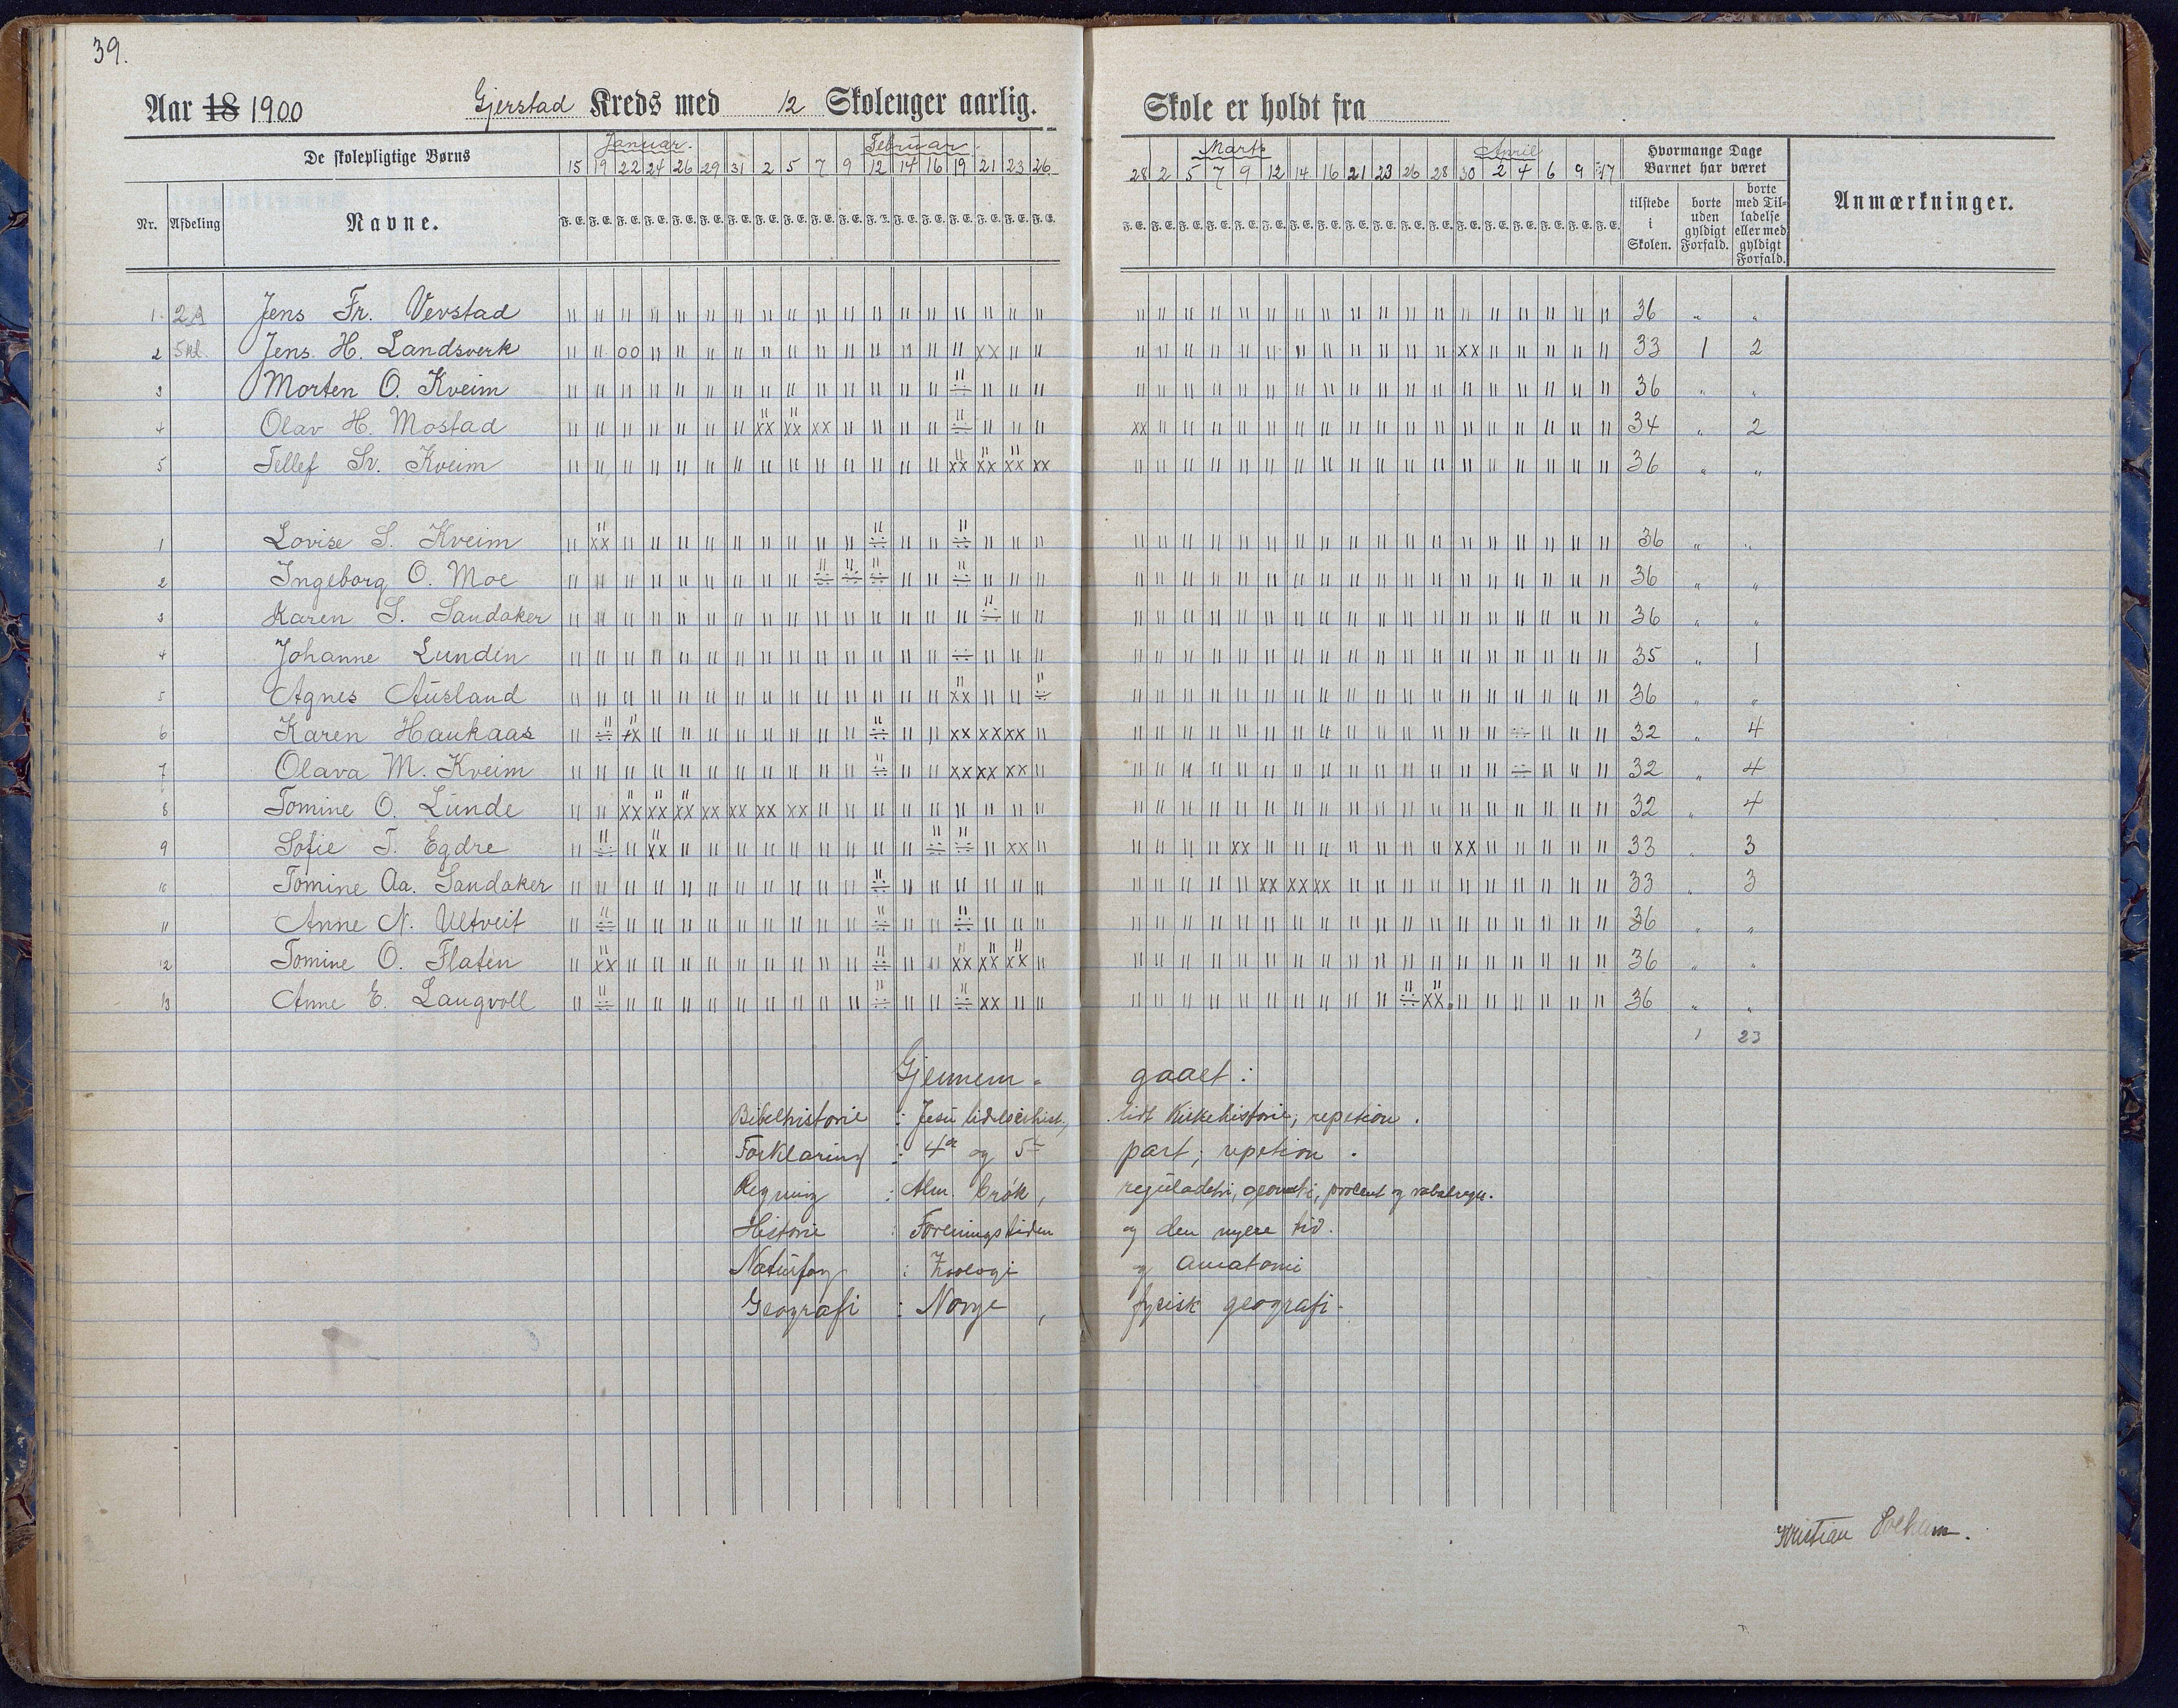 39.
Aar 18 1900 Gjerstad Kreds med 12 Skoleuger aarlig. Skole er holdt fra
De skolepligtige Børns Januar. Februar. Marts April Hvormange Dage Barnet har været Anmærkninger.
15 19 22 24 26 29 31 2 5 7 9 12 14 16 19 21 23 26 28 2 5 7 9 12 14 16 21 23 26 28 30 2 4 6 9 17
Nr. Afdeling Navne. F. E. F. E. F. E. F. E. F. E. F. E. F. E. F. E. F. E. F. E. F. E. F. E. F. E. F. E. F. E. F. E. F. E. F. E. F. E. F. E. F. E. F. E. F. E. F. E. F. E. F. E. F. E. F. E. F. E. F. E. F. E. F. E. F. E. F. E. F. E. F. E. tilstede i Skolen. borte uden gyldigt Forfald. borte med Tilladelse eller med gyldigt Forfald.
1. Jens Fr. Vevstad 36 " "
2 5 kl. Jens H. Landsverk 33 1 2
3 Morten O. Kveim 36 " "
4 Olav H. Mostad 34 " 2
5 Tellef Sv. Kveim 36 " "
1 Lovise S. Kveim 36 " "
2 Ingeborg O. Moe 36 " "
3 Karen S. Sandaker 36 " "
4 Johanne Lunden 35 " 1
5 Agnes Ausland 36 " "
6 Karen Haukaas 32 " 4
7 Olava M. Kveim 32 " 4
8 Tomine O. Lunde 32 " 4
9 Sofie T. Egdre 33 " 3
10 Tomine Aa. Sandaker 33 " 3
11 Anne N. Ultveit 36 " "
12 Tomine O. Flaten 36 " "
13 Anne E. Laugvoll 36 " "
1 23
Gjennem- gaaet :
Bibelhistorie : Jesu lidelseshist., lidt Kirkehistorie, repetion.
Forklaring : 4de og 5te part, repetion.
Regning : Alm. brøk, reguladetri, geometri, procent og rabatregn.
Historie : Foreningstiden og den nyere tid.
Naturfag : Zoologi og Anatomi
Geografi : Norge, fysisk geografi.
Kristian Solheim.